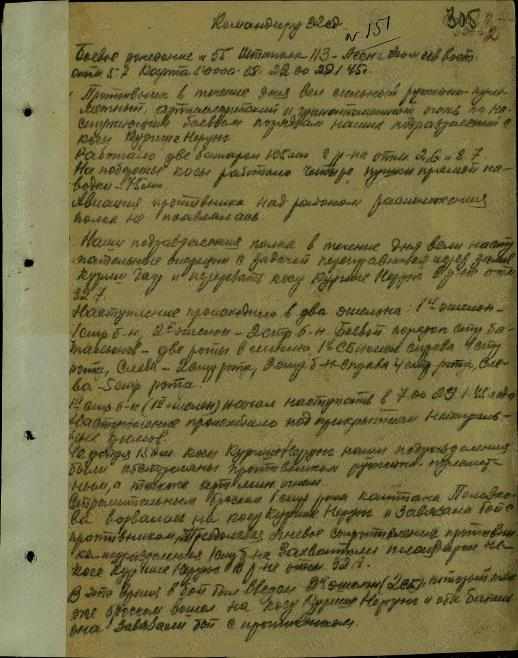 Командиру 32 сд.
№ 151
305
2
Боевое донесение № 55 Штаполк 113 - Лесн
отм 5.7 Карта 100000 22.00 29.1.45г.
Противник в течение дня вел сильный ружейно-пуле-
метный, артиллерийский и огонь по на-
ступающим боевым порядкам наших подразделений с
косы Курише Нерунг
Работало две батареи 105 мм с р-на отм 2,6 и 8.7
На побережье косы работало четыре пушки прямой на-
водки - 75 мм.
Авиация противника над районом расположения
полка не появлялась.
Наши подразделения полка в течение дня вели насту
пательные операции с задачей переправиться через залив
Куриш Гаф и перерезать косу Курише Нерунг отм
32.7.
Наступление происходило в два эшелона: 1й эшелон -
1 стр б-н, 2й эшелон - 2 стр б-н. Боевой порядок стр ба-
тальонов - две роты в линию 1й справа стр
рота, слева - 2 стр рота, 2 стр б-н - справа 4 стр рота, сле-
ва - 5 стр рота.
1й стр б-н (1й эшелон) начал наступать в 7.00 29.1.45 года
Наступление происходило под прикрытием
дымов.
косы Курише Нерунг наши подразделения
были обстреляны противником ружейно-пулемет-
ным, а также арт мин огнем.
Стремительным броском 1 стр рота капитана
ворвалась на косу Курише Нерунг и завязала бой с
противником. Преодолевая огневое сопротивление противни-
ка подразделения 1 стр б-на захватили плацдарм на
косе Курише Нерунг в р-не отм. 32.7.
В это время в бой был введен 2й эшелон (2 сб), который так
же броском вышел на косу Курише Нерунг и оба баталь
она завязали бой с противником.